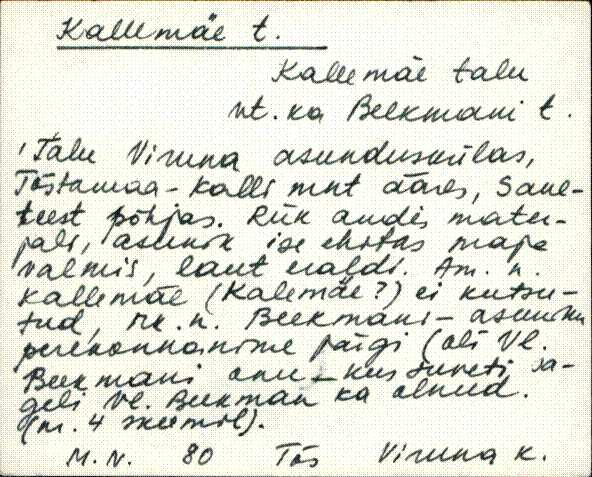 Kallemäe t.
Kallemäe talu
vt. ka Beekmani t.
Talu Viruna asunduskülas,
Tõstamaa-Kalli mnt ääres, Saue-
teest põhjas. Riik andis mater-
jali, asunik ise ehitas maja
valmis, laut eraldi. Am. n.
Kallemäe (Kalemäe?) ei kutsu-
tud, rk. n. Beekmani - asuniku
perekonnanime järgi (oli Vl.
Beekmani onu - kus suveti sa-
geli Vl. Beekman ka olnud.
(nr. 4 skeemil).
M. N. 80 Tõs Viruna k.